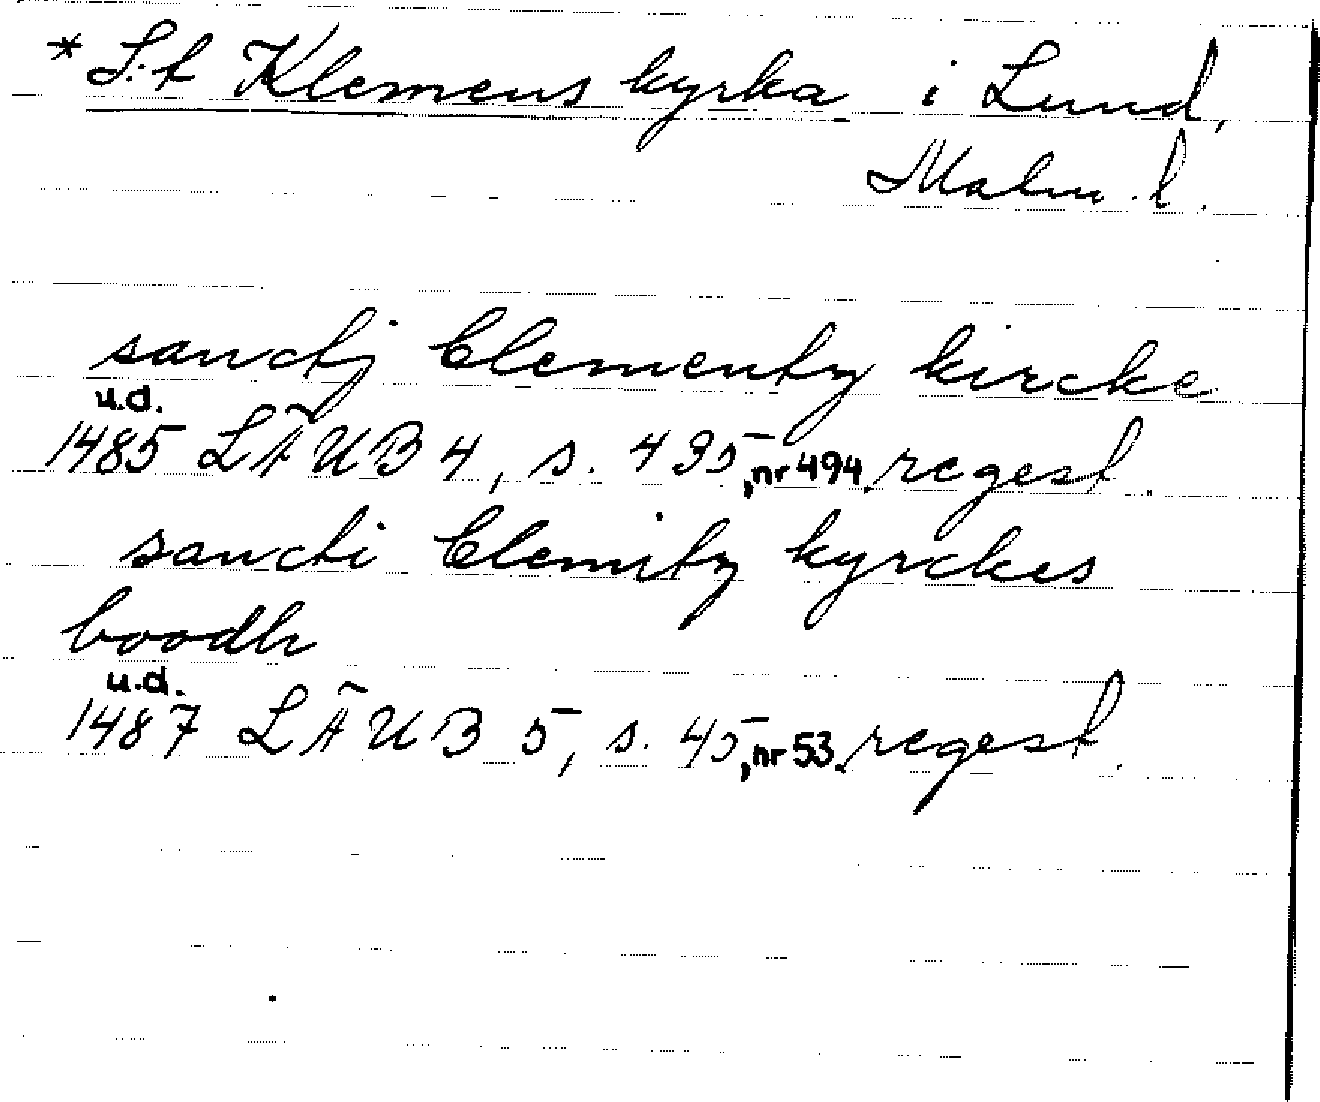 * S:t Klemens kyrka i Lund,
Malm. l.
sanctj Clementz kircke
u.d.
1485 LÄUB 4, s. 495, nr 494, regest.
sancti Clemitz kyrckes
boodh
u.d.
1487 LÄUB 5, s. 45, nr 53, regest.